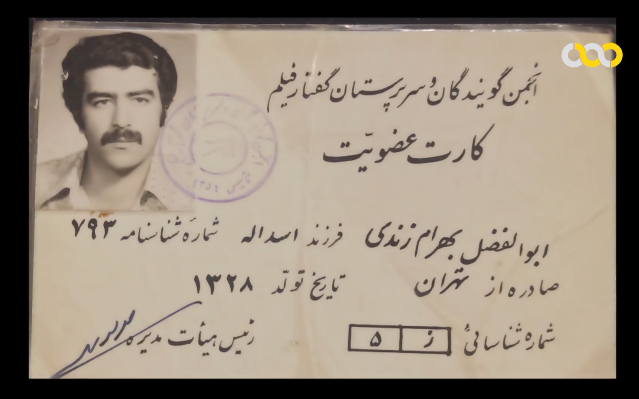 انجمن گویندگان و سرپرستان گفتار فیلم
کارت عضویت
ابوالفضل بهرام زندی فرزند اسداله شماره شناسنامه ۷۹۳
صادره از تهران تاریخ تولد ۱۳۲۸
شمارهٔ شناسائی ز ۵
رئیس هیأت مدیره